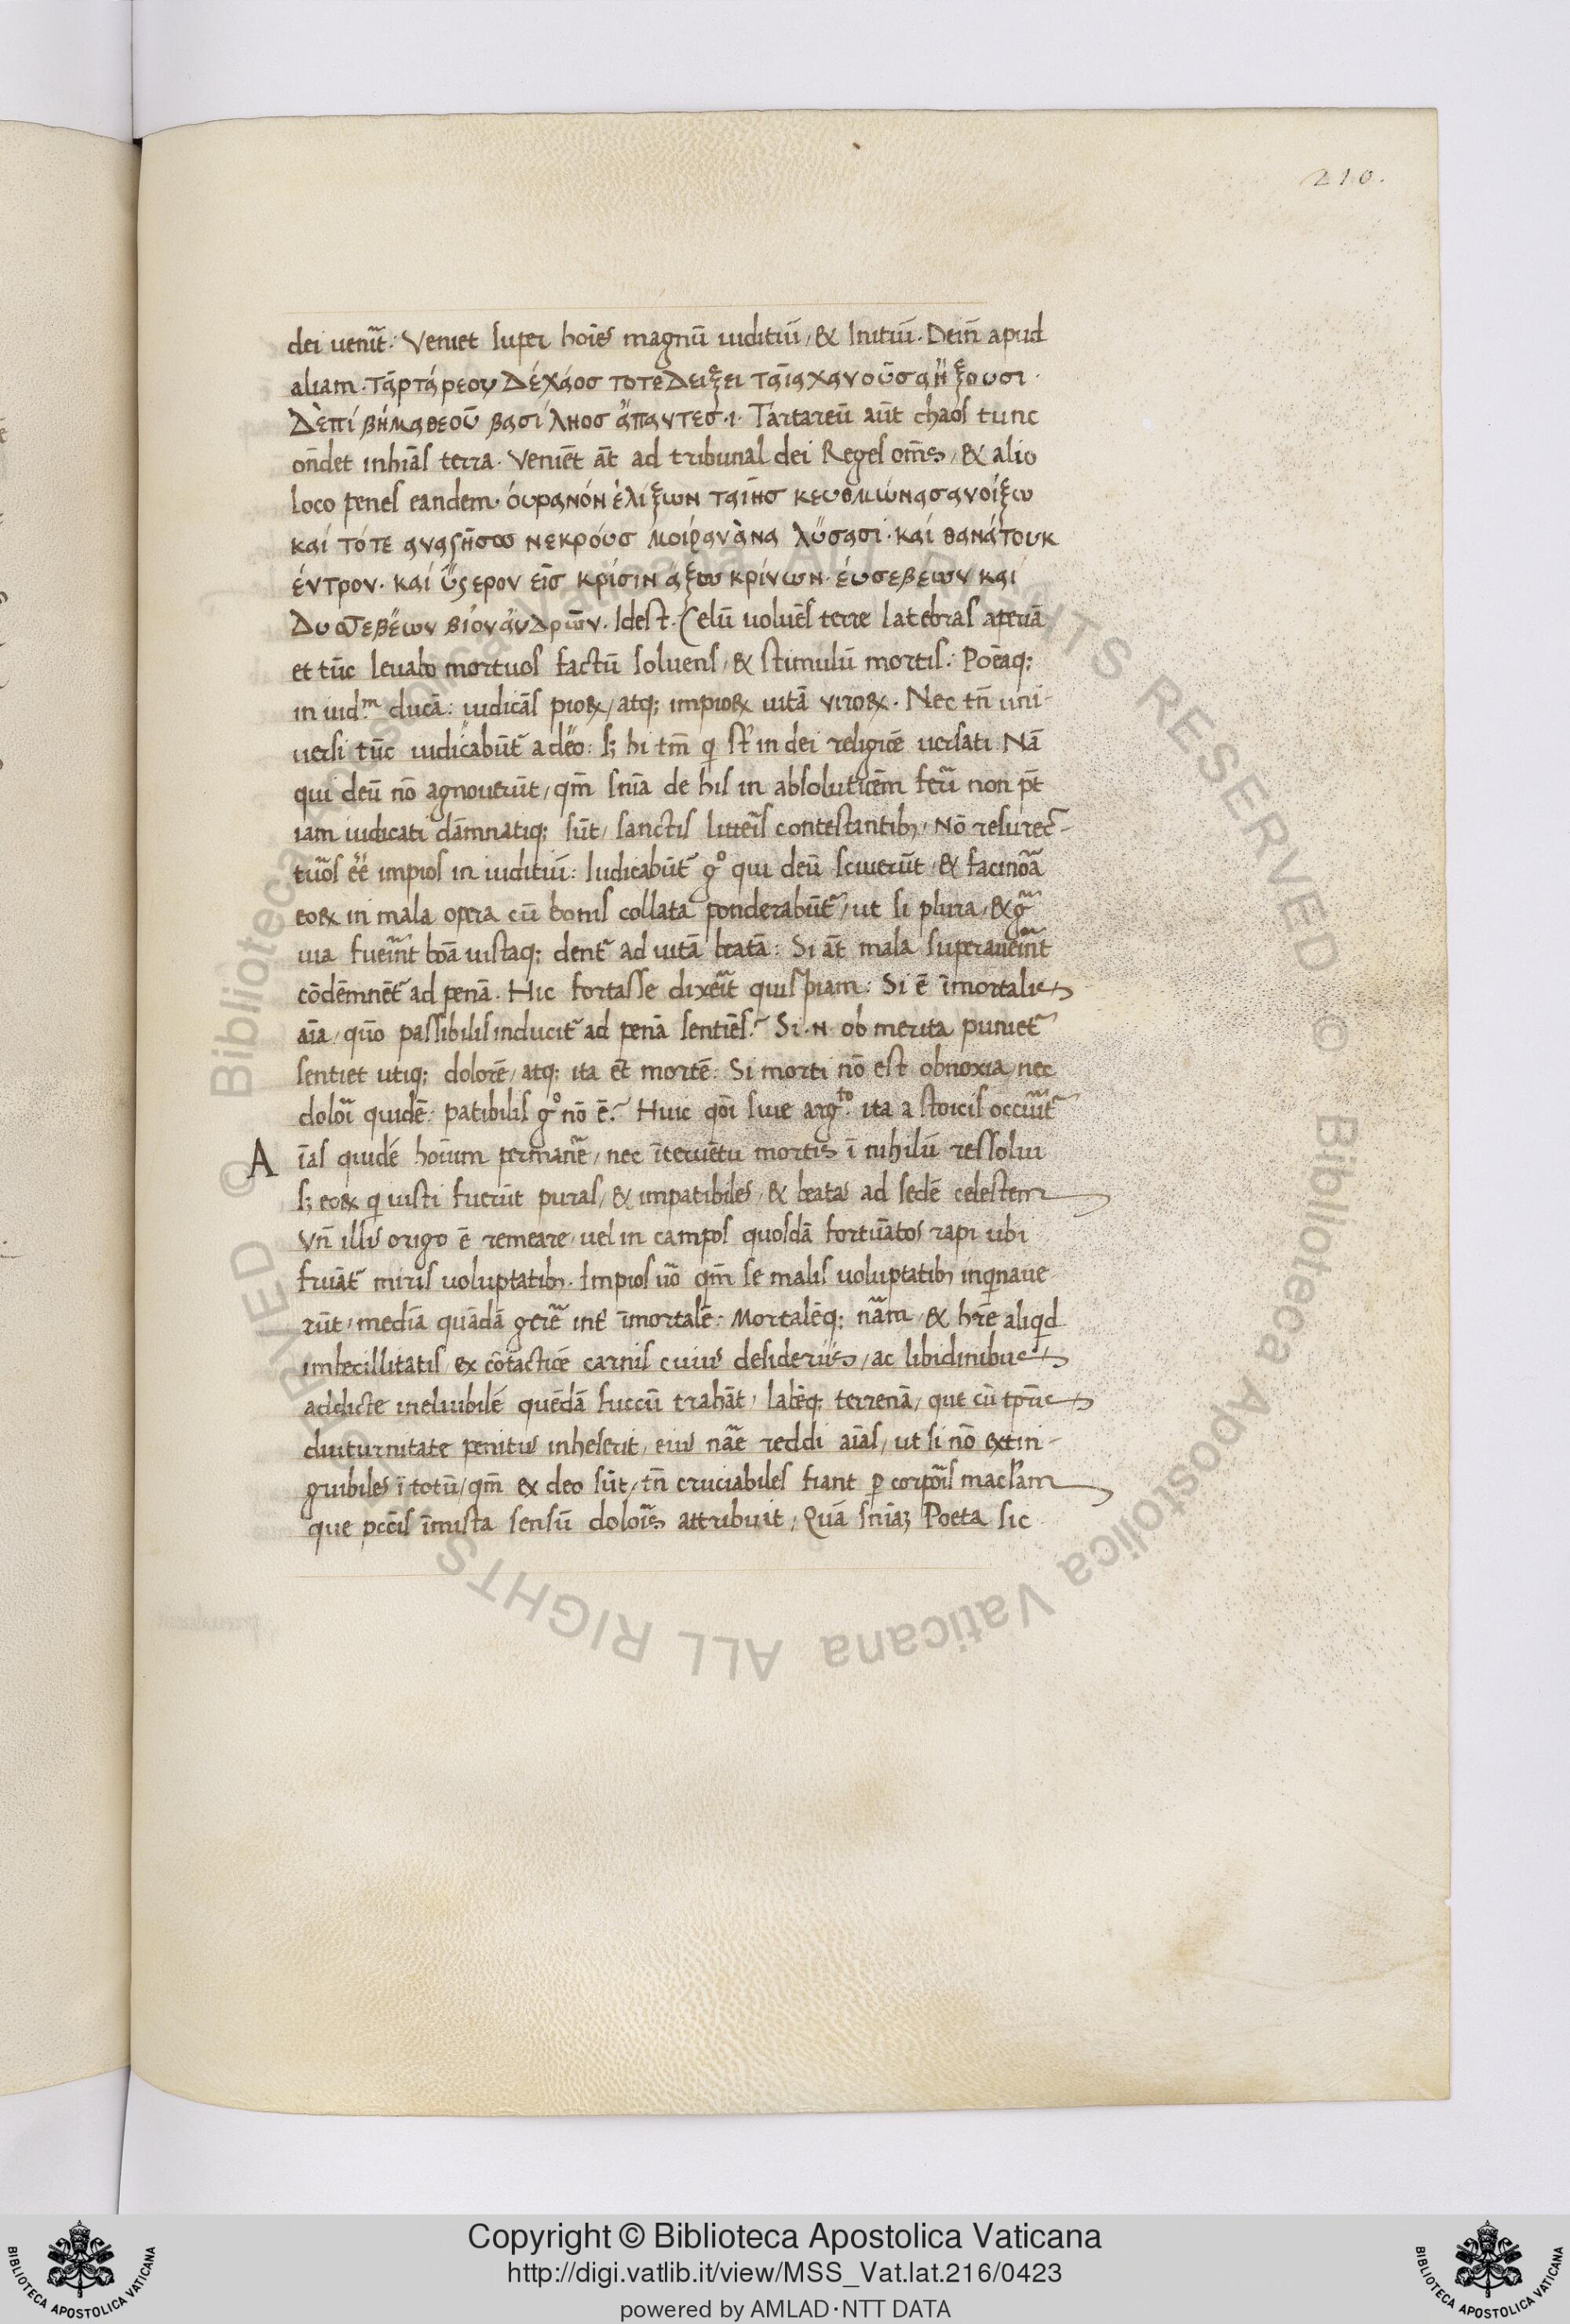 210.
dei venit̃: Veniet super hoīes magnũ iuditiũ, & Initiũ. Dein̄ apud
aliam. τᾶρτάρεου Δέχάοσ τοτε Δειξει ταῖαχανοῦσαἢξουσι.
Δὲπί βήμαθεοῦ βασίληοσ ἅπαντεσ. ι. Tartareũ aũt chaos tunc
on̄det inhiās terra. Veniēt āt ad tribunal dei Reges om̄s, & alio
loco penes eandem. όυρανόν ἑλίξων ταίησ κευθμώνασανοίξω
και τότε αναςήσω νεκρόυσ μοιραν ἀνα λύσασι. και θανάτουκ
έντρον. και ὕςερον εισ κρίσιν άξω κρίνων. έυσεβεων και
Δυσσεβέων βίον ἀνδρῶν. Idest. Celũ voluēs terre latebras aperiã
et tũc levabo mortuos factũ solvens, & stimulũ mortis: Poēaq;
in iud.ͫ ducã: iudicās pioꝝ, atq; impioꝝ vitã viroꝝ. Nec tn̄ uni-
versi tũc iudicabũt̃ a deo: s; hi tm̄ q̇ st̃ in dei religiōe versati. Nã
qui deũ nō agnoverũt, qm̄ sn̄ia de his in absolutiōem ferri non pt̄
iam iudicati dãmnatiq; sũt, sanctis litteris contestantib, Nō resurec-
turos ēē impios in iuditiũ: Iudicabũt̃ gͦ qui deũ sciverũt, & facinora
eoꝝ in mala opera cũ bonis collata ponderabũt̃, ut si plura, & gra
via fuerint bōa iustaq; dent̃ ad vitã beatã: Si āt mala superaverint
cōdēmnēt̃ ad penã. Hic fortasse dixerit quispiam: Si ē īmortalis
aīa, quō passibilis inducit̃ ad penã sentiēs? Si .N. ob merita puniet̃
sentiet utiq; dolorē, atq; ita et̄ mortē: Si morti nō est obnoxia, nec
dolori quidē: patibilis gͦ nō ē? Huic q̄oi sive arg.ᵗᵒ ita a stoicis occurrit̃
A īas quidē hoīum permanere, nec īterventu mortis ī nihilũ ressolvi
s; eoꝝ q̇ iusti fuerũt puras, & impatibiles, & beatas ad sedē celestem
Vn̄ illis origo ē remeare, vel in campos quosdã fortunatos rapi ubi
fruāt̃ miris voluptatib. Impios vō qm̄ se malis voluptatib inq̇nave
rũt, mediã quãdã gerere int̄ īmortalē: Mortalēq; nãm, & hr̄e aliq̇d
imbecillitatis, ex cōtactiōe carnis cuius desideriis, ac libidinibus
addicte ineluibilē quēdã fuccũ trahãt, labēq; terrenã, que cũ tpr̄is
diuturnitate penitus inheserit, eius nãe reddi aīas, ut si nō extin-
guibiles ī totũ, qm̄ ex deo sũt, tn̄ cruciabiles fiant ꝑ corporis maclam
que pccīs īmista sensũ doloris attribuit, Quã sn̄iaꝫ Poeta sic
Copyright © Biblioteca Apostolica Vaticana
http://digi.vatlib.it/view/MSS_Vat.lat.216/0423
powered by AMLAD·NTT DATA